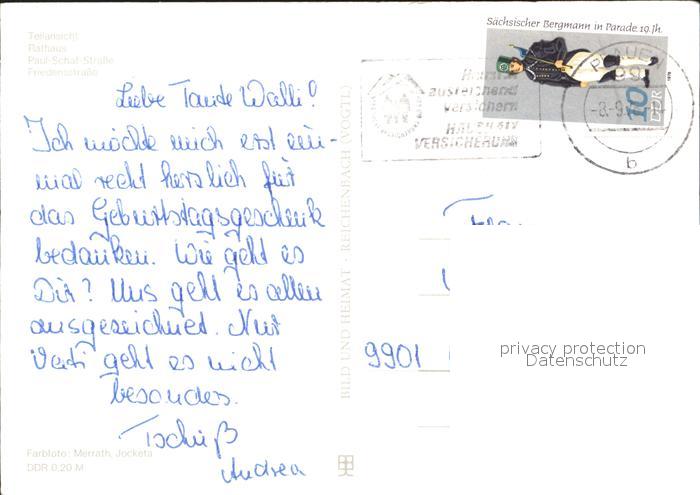 Teilansicht
Rathaus
Paul-Schaf-Straße
Friedensstraße
Liebe Tante Walli!
Ich möchte mich erst ein-
mal recht herzlich für
das Geburtstagsgeschenk
bedanken. Wie geht es
Dir? Uns geht es allen
ausgezeichnet. Nur
Vati geht es nicht
besonders.
Tschüß
Andrea
Farbfoto: Merrath, Jocketa
DDR 0,20 M
BILD UND HEIMAT · REICHENBACH (VOGTL)
Sächsischer Bergmann in Parade 19. Jh.
10
DDR
1978
ausreichend
versichern
HAUSHALT
VERSICHERUNG
PLAUEN
99
-8.-9.
b
Frau
9901
privacy protection
Datenschutz